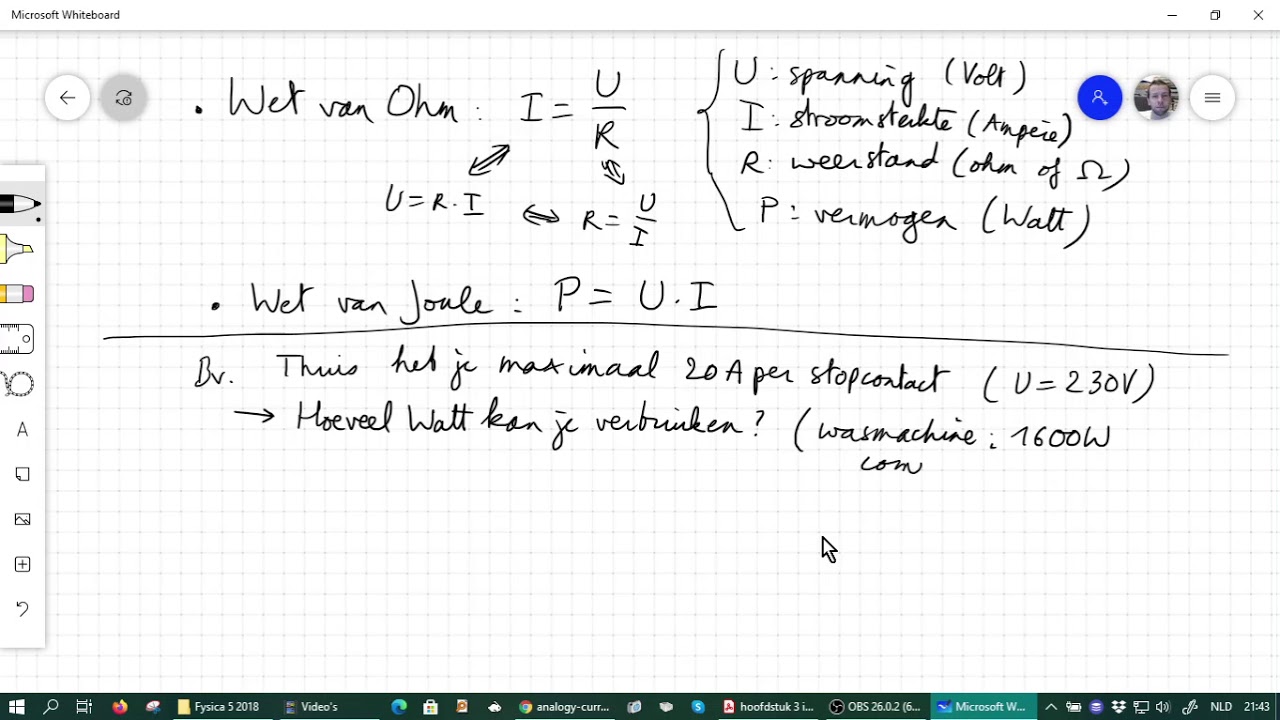 Microsoft Whiteboard
• Wet van Ohm : I = U/R
U = R . I ⇔ R = U/I
U : spanning (Volt)
I : stroomsterkte (Ampère)
R : weerstand (ohm of Ω)
P : vermogen (Watt)
• Wet van Joule : P = U . I
Bv. Thuis heb je maximaal 20A per stopcontact (U = 230V)
→ Hoeveel Watt kan je verbruiken? (wasmachine : 1600W
com
A
Fysica 5 2018
Video's
analogy-curr...
hoofdstuk 3 i...
OBS 26.0.2 (6...
Microsoft W...
NLD
21:43